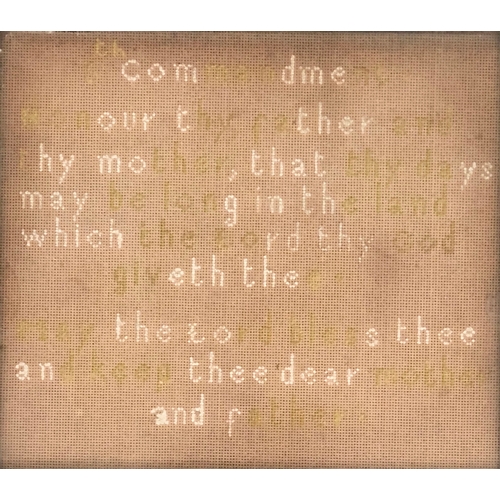 5th commandment
Honour thy father and
thy mother, that thy days
may be long in the land
which the Lord thy God
giveth thee
may the Lord bless thee
and keep thee dear mother
and father